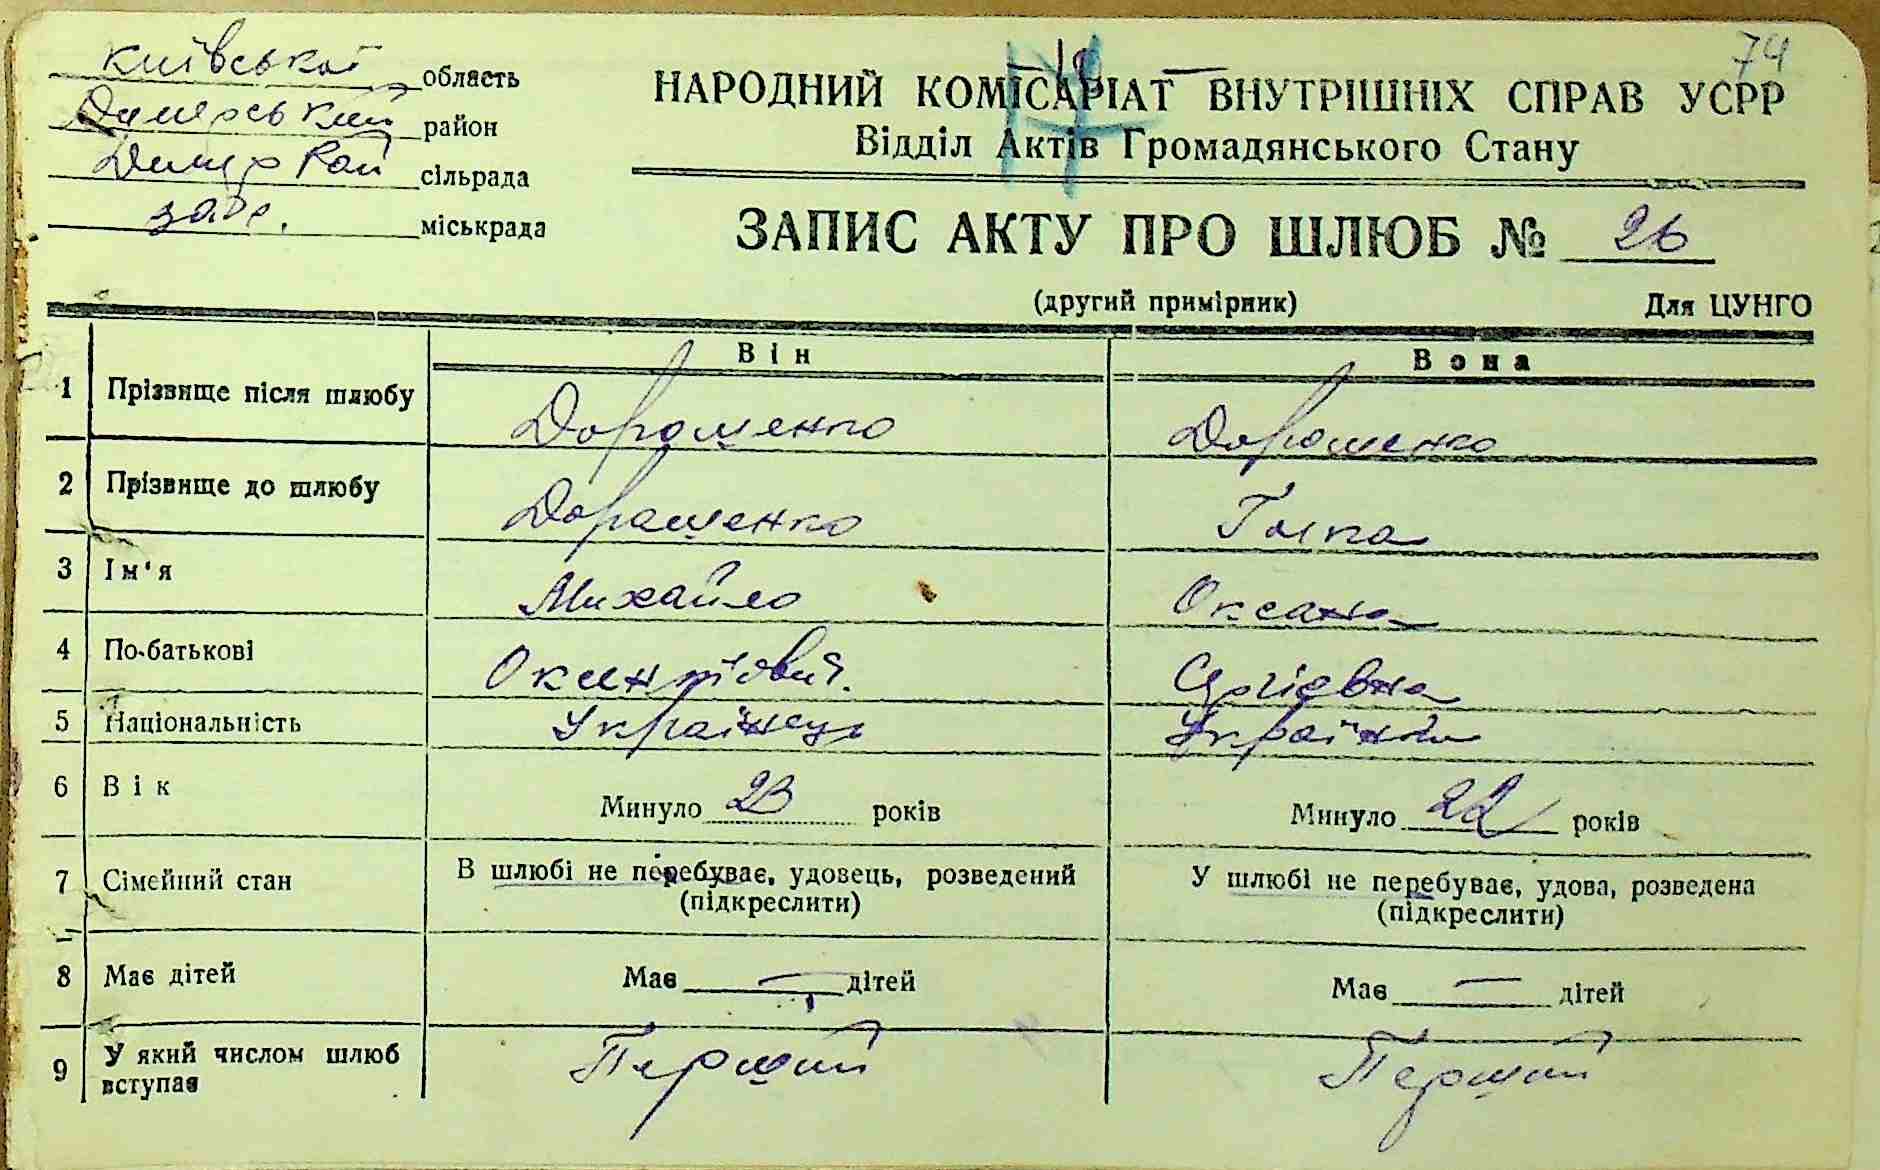 74
Київської область
Димерський район
Димер Рай сільрада
загс. міськрада
НАРОДНИЙ КОМІСАРІАТ ВНУТРІШНІХ СПРАВ УСРР
Відділ Актів Громадянського Стану
ЗАПИС АКТУ ПРО ШЛЮБ № 26
(другий примірник) Для ЦУНГО
Він Вона
1 Прізвище після шлюбу Дорошенко Дорошенко
2 Прізвище до шлюбу Дорошенко
3 Ім'я Михайло Оксана
4 По-батькові Оксентiйович. Сергієвна
5 Національність Українець Українка
6 Вік Минуло 23 років Минуло 22 років
7 Сімейний стан В шлюбі не перебуває, удовець, розведений У шлюбі не перебуває, удова, розведена
(підкреслити) (підкреслити)
8 Має дітей Має — дітей Має — дітей
9 У який числом шлюб вступає Перший Перший